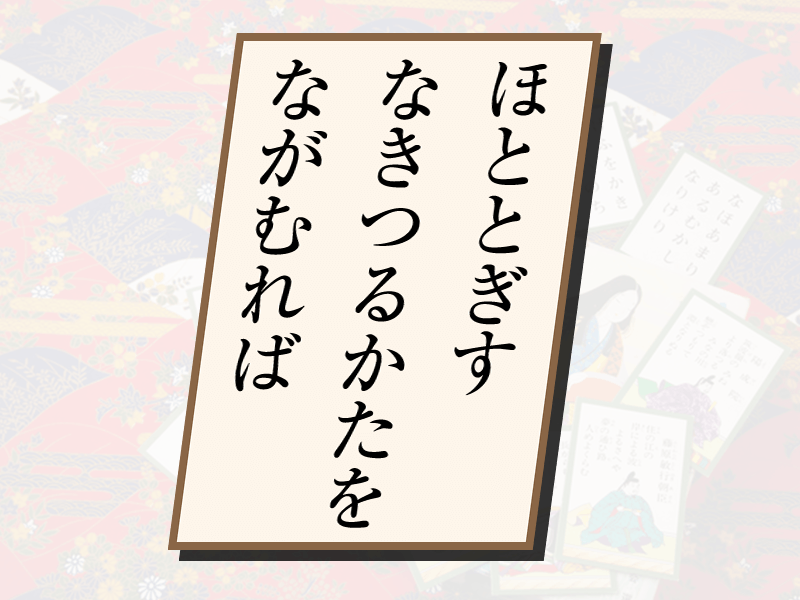 ほととぎす
なきつるかたを
ながむれば